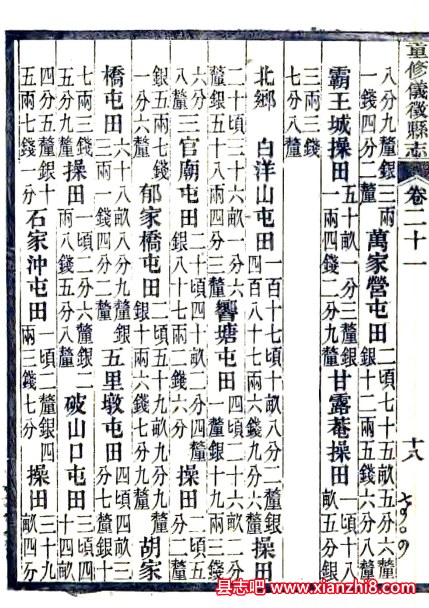 重修儀徵縣志 卷二十一 十八
八分九釐銀三兩
一錢四分二釐
萬家營屯田
二頃七十五畝五分六釐
銀十二兩五錢六分九釐
霸王城操田
五十畝一分三釐銀
一兩四錢二分九釐
甘露菴操田
一頃十八
畝五分銀
三兩三錢
七分八釐
北鄉 白洋山屯田
一百十七頃十畝八分二釐銀
四百八十七兩六錢九分六釐
操田
二十頃三十六畝一分六
釐銀五十八兩四分二釐
響塘屯田
四頃二十六畝六分
六分
八釐
三官廟屯田
二十頃四畝二分
銀八十七兩九錢六分
操田
二頃五
銀五兩七錢
一分六釐
郁家橋屯田
二頃五十九畝九分九釐
銀十兩六錢七分九釐
胡家
橋屯田
六十八畝六分六釐銀
三兩一錢四分二釐
五里墩屯田
七兩三錢
五分九釐
操田
一頃二分六釐銀二
兩八錢五分八釐
破山口屯田
三頃四
十四畝
四分五釐銀十
五兩七錢一分
石家沖屯田
一頃二釐銀四
兩三錢七分
操田
三十九
畝四分
县志吧 www.xianzhi8.com